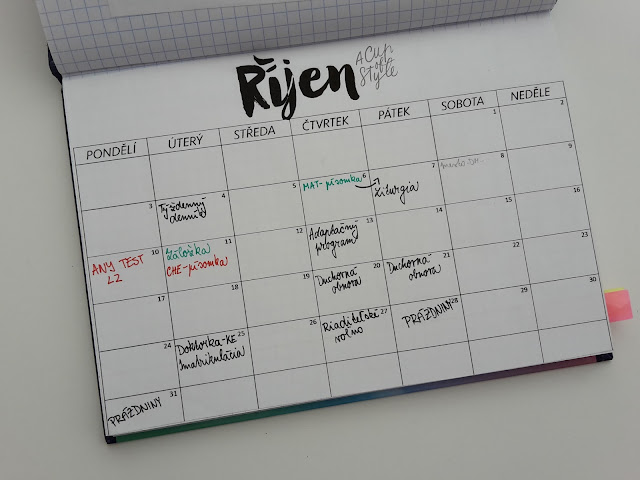 Říjen
A Cup
of
Style
PONDĚLÍ ÚTERÝ STŘEDA ČTVRTEK PÁTEK SOBOTA NEDĚLE
1 2
3 4 5 6 7 8 9
Týždenný
denník
MAT-písomka
Liturgia
10 11 12 13 14 15 16
ANY TEST
LZ
Záložka
CHE-písomka
Adaptačný
program
17 18 19 20 21 22 23
Duchovná
obnova
Duchovná
obnova
24 25 26 27 28 29 30
Doktorka-KE
imatrikulácia
Riaditeľské
voľno
PRÁZDNINY
31
PRÁZDNINY